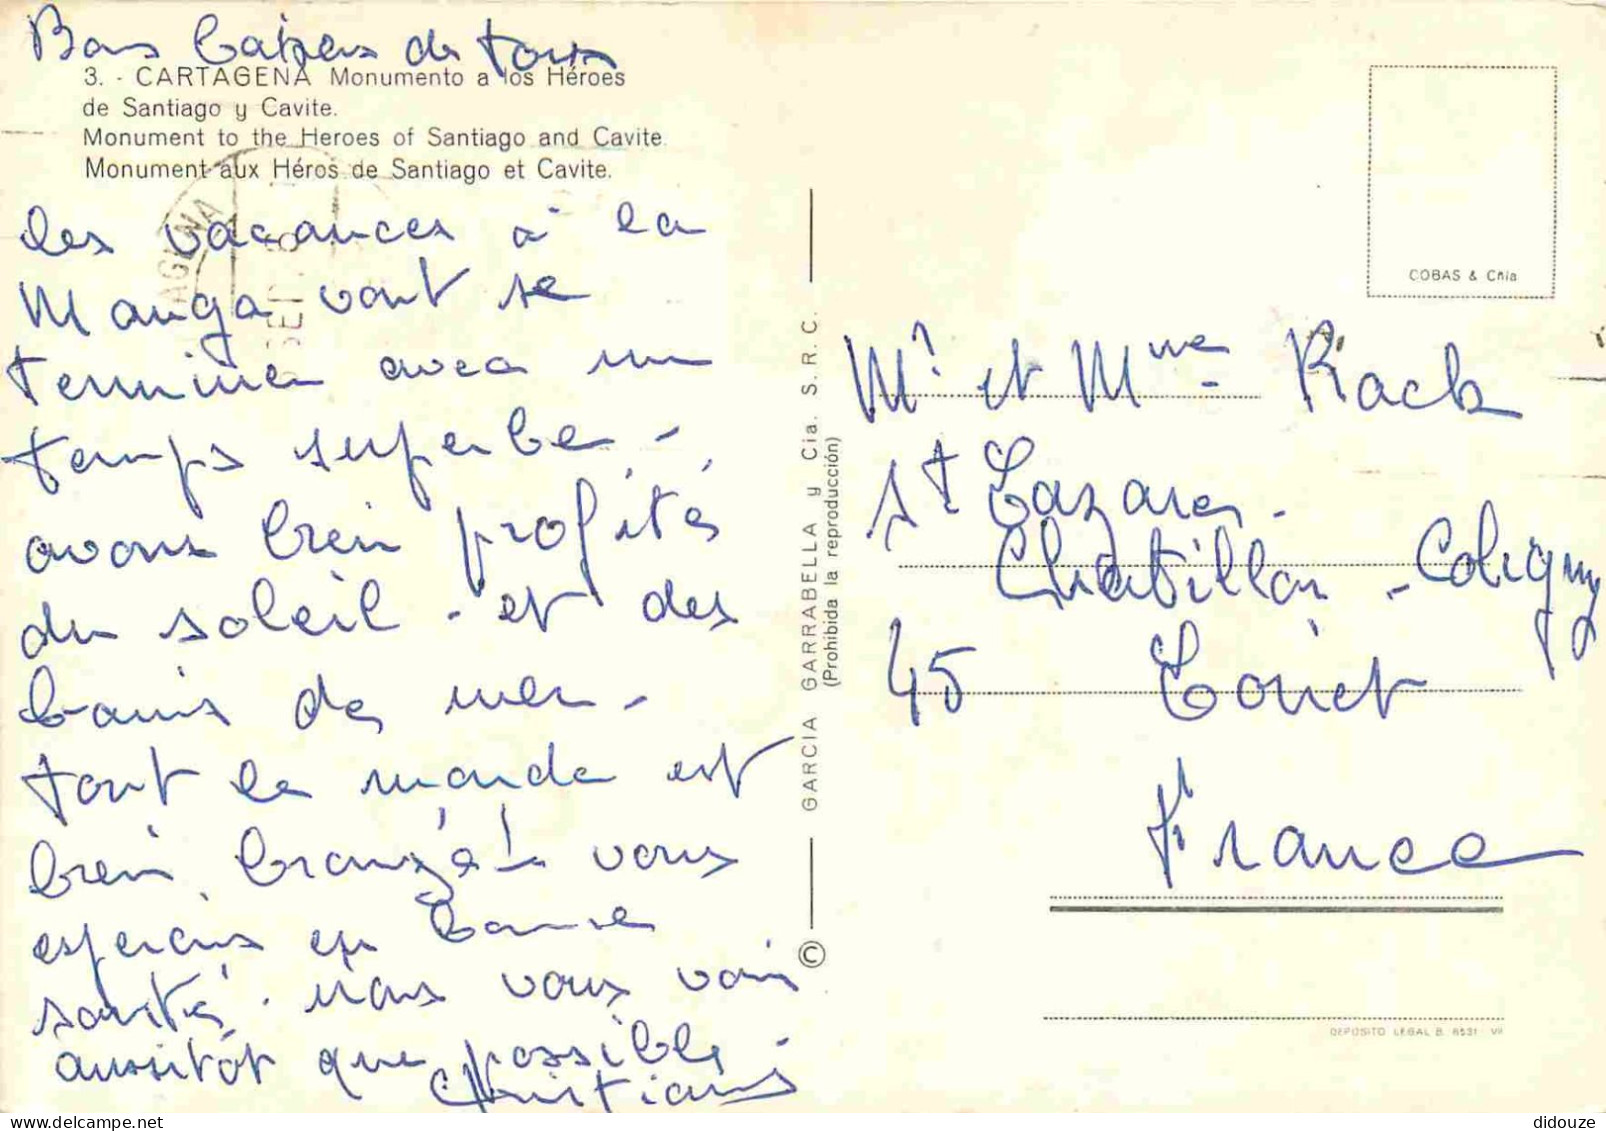 Bons baisers de tous
3. - CARTAGENA Monumento a los Héroes
de Santiago y Cavite.
Monument to the Heroes of Santiago and Cavite.
Monument aux Héros de Santiago et Cavite.
les vacances à la
Manga vont se
terminer avec un
temps superbe -
avons bien profités
du soleil - et des
bains de mer -
tout le monde est
bien bronzé ! vous
espérons en bonne
santé. nous vous voir
aussitôt que possible -
Christiane
GARCIA GARRABELLA y Cia. S. R. C.
(Prohibida la reproducción)
©
COBAS & Cñia
Mr et Mme Rack
St Lazare -
Chatillon - Coligny
45 Loiret
France
DEPOSITO LEGAL B. 6531 - VII
didouze